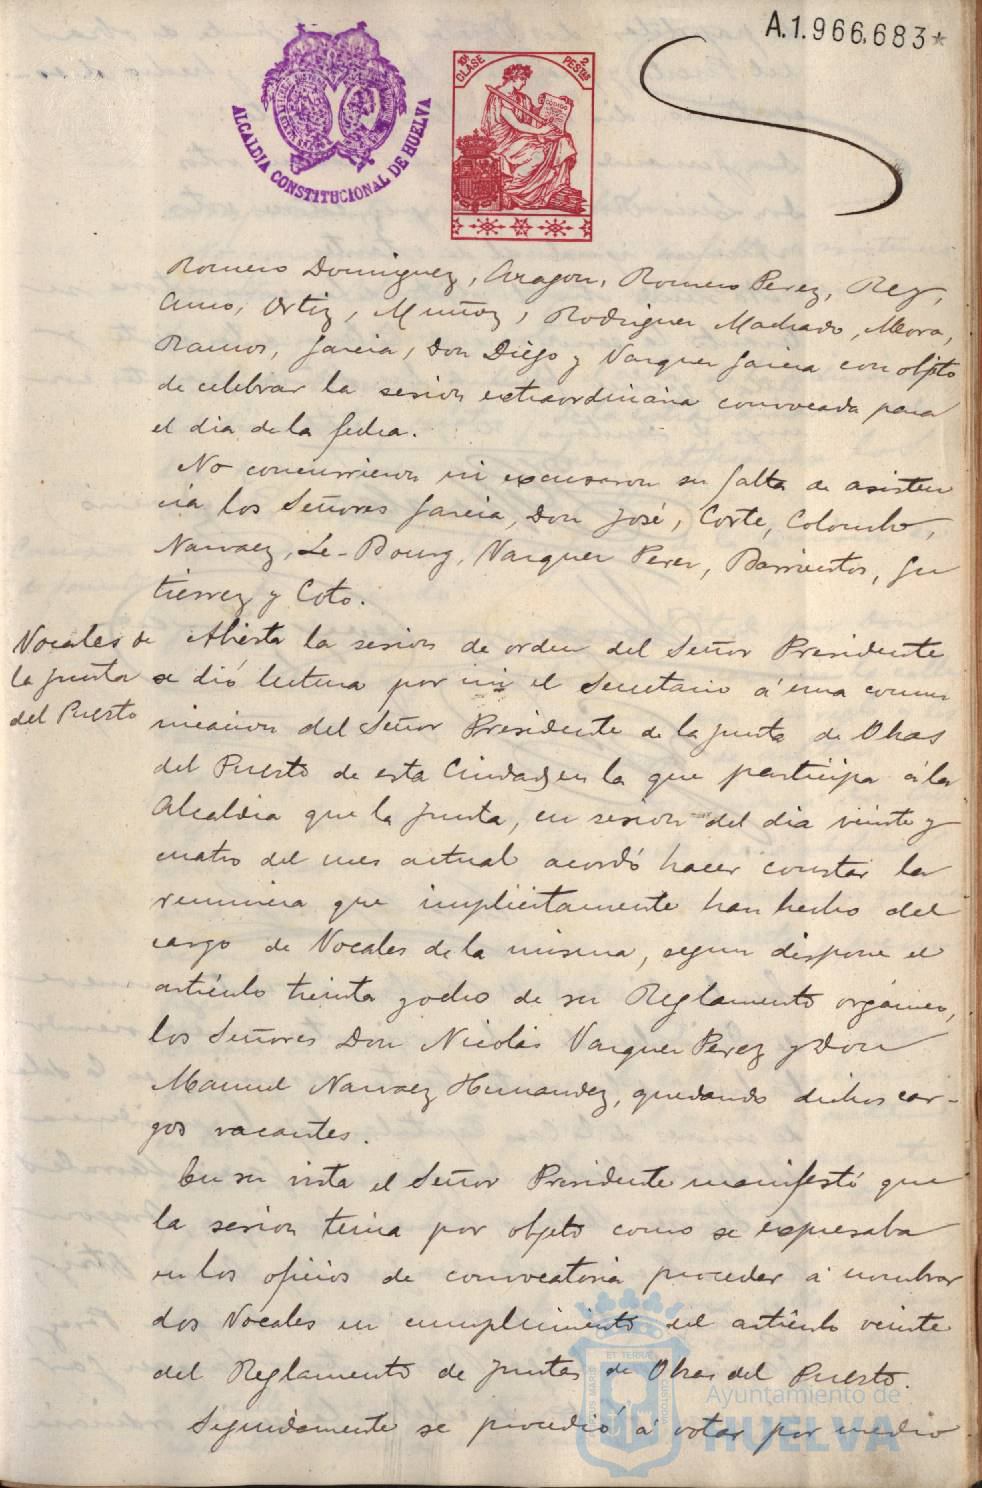 A.1.966.683*
ALCALDIA CONSTITUCIONAL DE HUELVA
10ª CLASE
2 PESTAS
Romero Dominguez, Aragon, Romero Perez, Rey,
Amo, Ortiz, Muñoz, Rodriguez Machado, Mora,
Ramos, Garcia, Don Diego y Vazquez Garcia con objeto
de celebrar la sesion extraordinaria convocada para
el dia de la fecha.
No concurrieron ni excusaron su falta de asisten
cia los Señores Garcia, Don José, Corte, Colombo,
Narvaez, Le-Bourg, Vazquez Perez, Barrientos, Gu
tierrez y Coto.
Vocales de
la Junta
del Puerto
Abierta la sesion de orden del Señor Presidente
se dió lectura por mi el Secretario á una comu
nicacion del Señor Presidente de la Junta de Obras
del Puerto de esta Ciudad, en la que participa á la
Alcaldia que la Junta, en sesion del dia veinte y
cuatro del mes actual acordó hacer constar la
renuncia que implicitamente han hecho del
cargo de Vocales de la misma, segun dispone el
artículo treinta y ocho de su Reglamento orgánico,
los Señores Don Nicolás Vazquez Perez y Don
Manuel Narvaez Hernandez, quedando dichos car-
gos vacantes.
En su vista el Señor Presidente manifestó que
la sesion tenia por objeto como se expresaba
en los oficios de convocatoria proceder á nombrar
dos Vocales en cumplimiento del artículo veinte
del Reglamento de Juntas de Obras del Puerto.
Seguidamente se procedió á votar por medio
Ayuntamiento de
HUELVA